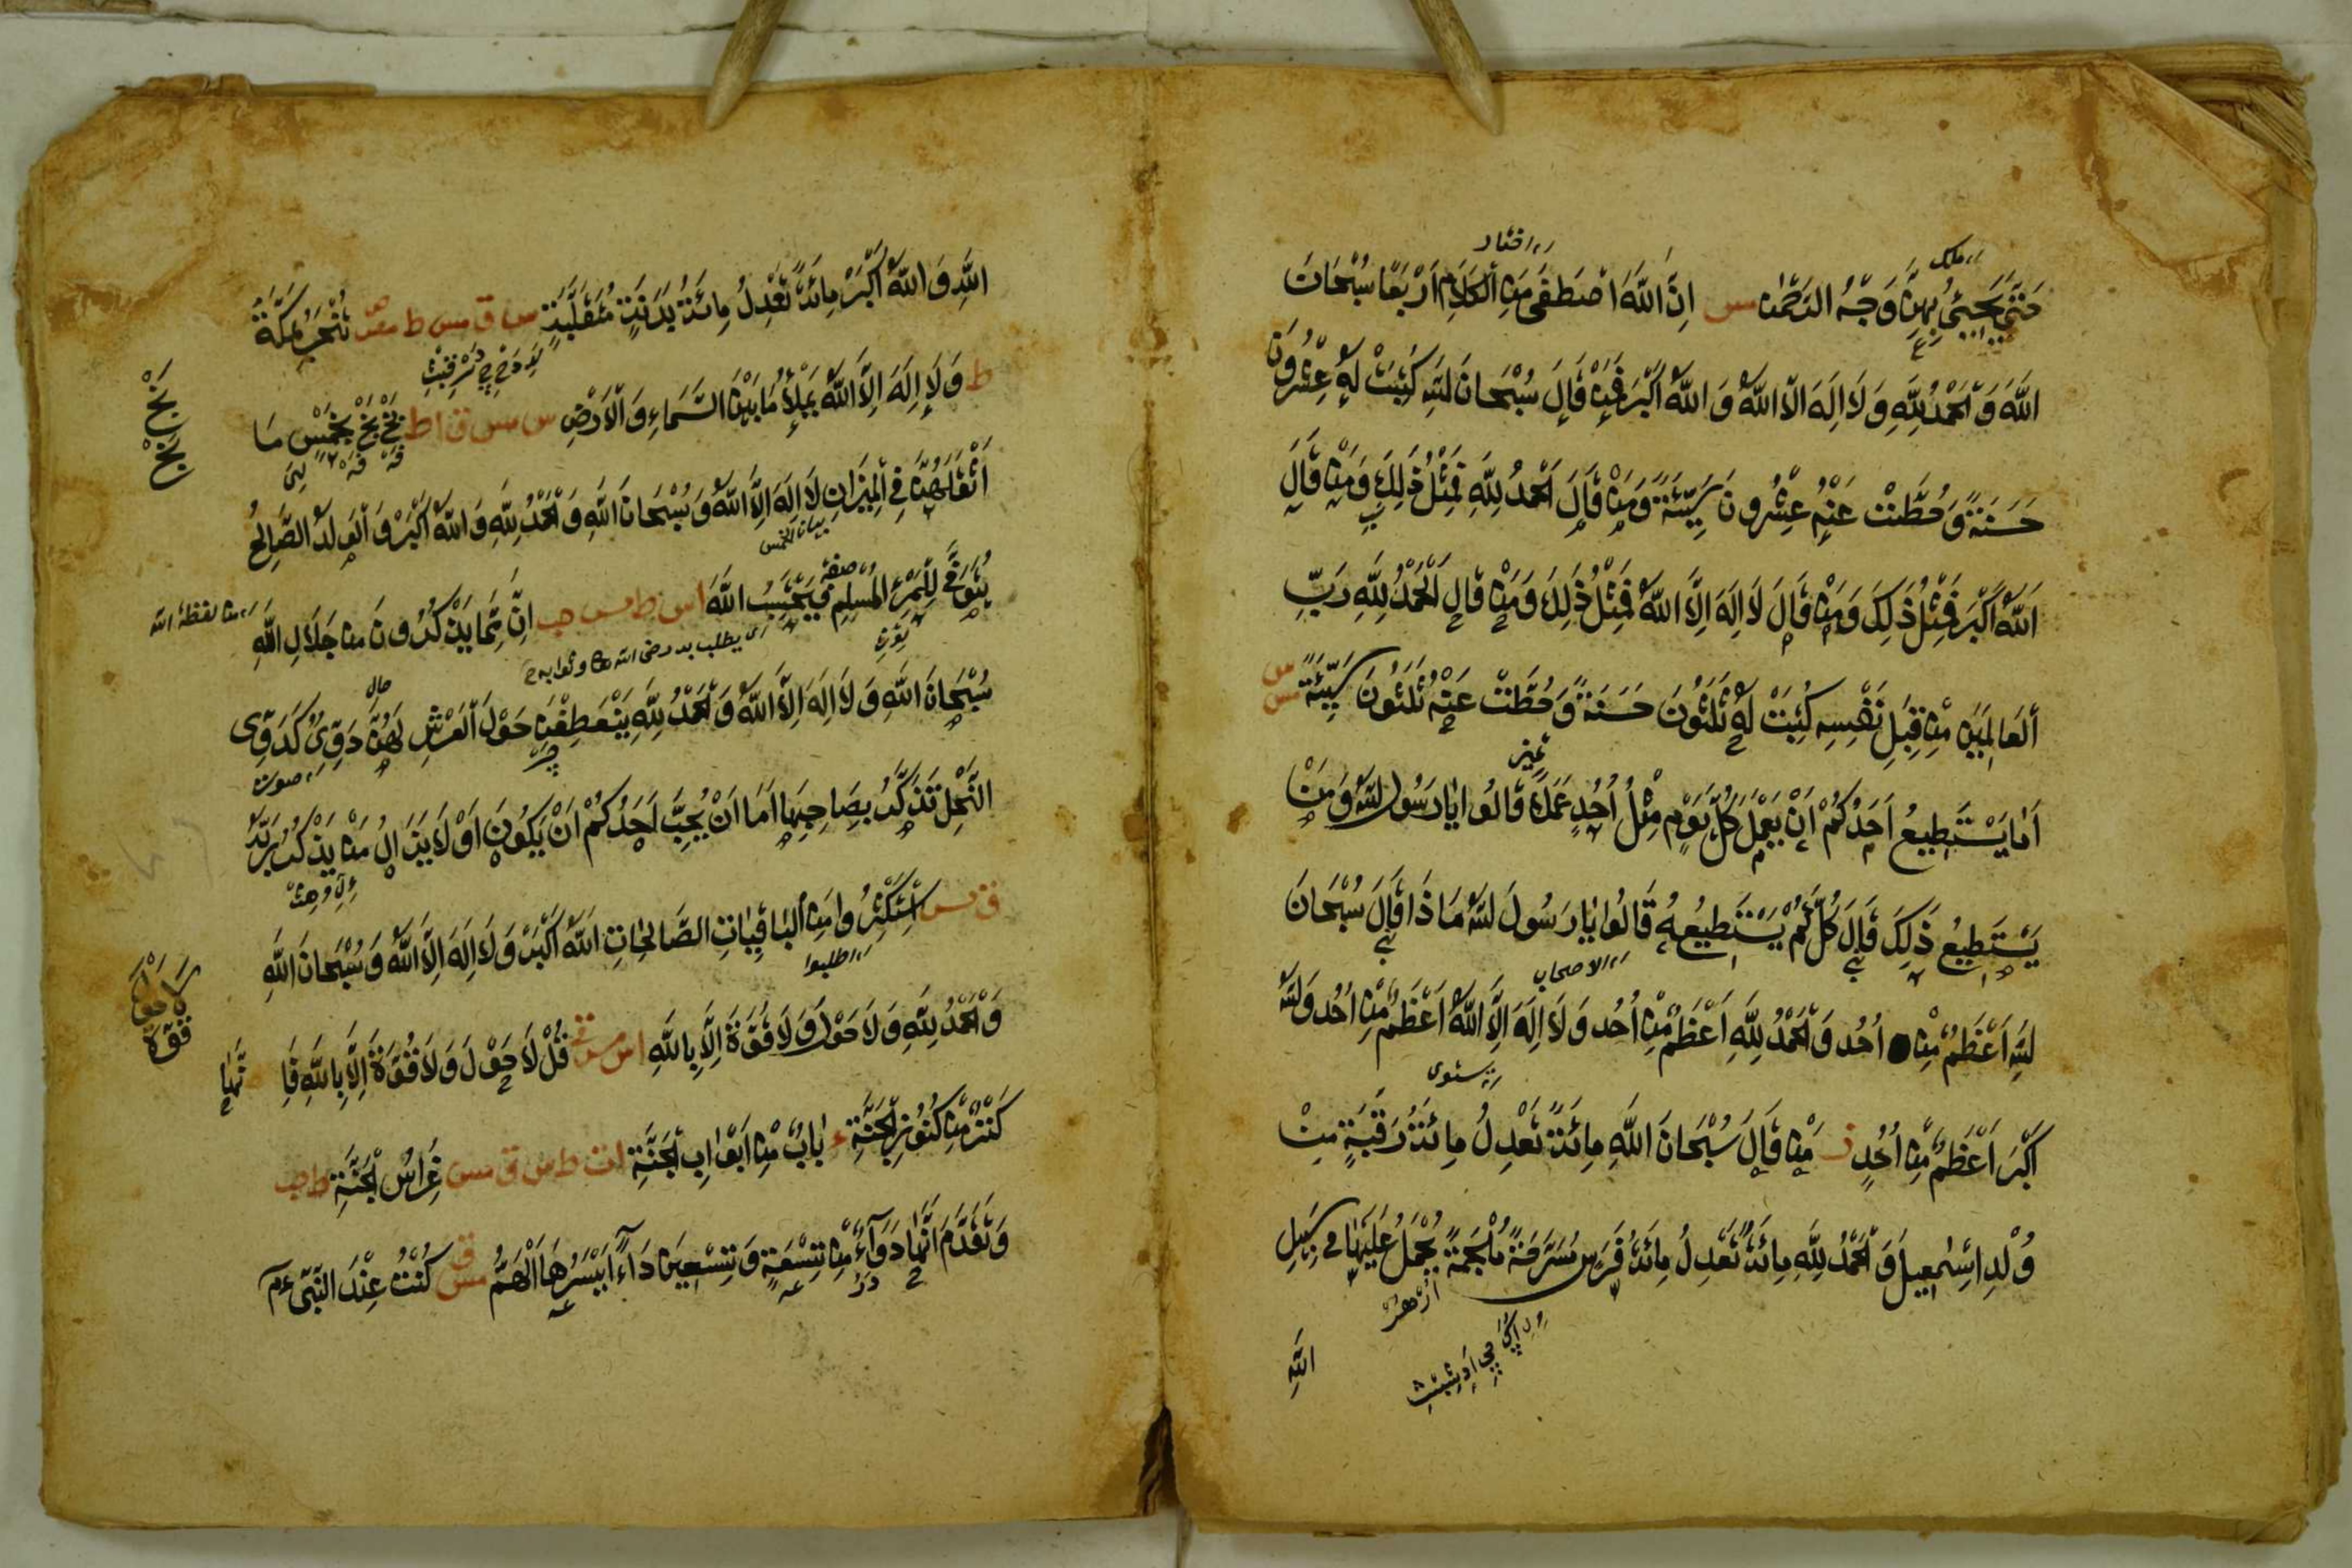 حَتّٰى يُحَيّٰى بِهِنَّ وَجْهُ الرَّحْمٰنِ مس اِنَّ اللّٰهَ اصْطَفٰى مِنَ الْكَلَامِ اَرْبَعًا سُبْحَانَ
اللّٰهِ وَالْحَمْدُ لِلّٰهِ وَلَا اِلٰهَ اِلَّا اللّٰهُ وَ اللّٰهُ اَكْبَرُ فَمَنْ قَالَ سُبْحَانَ اللّٰهِ كُتِبَتْ لَهٗ عِشْرُونَ
حَسَنَةً وَحُطَّتْ عَنْهُ عِشْرُونَ سَيِّئَةً وَمَنْ قَالَ اَلْحَمْدُ لِلّٰهِ فَمِثْلُ ذٰلِكَ وَمَنْ قَالَ
اَللّٰهُ اَكْبَرُ فَمِثْلُ ذٰلِكَ وَمَنْ قَالَ لَا اِلٰهَ اِلَّا اللّٰهُ فَمِثْلُ ذٰلِكَ وَمَنْ قَالَ اَلْحَمْدُ لِلّٰهِ رَبِّ
الْعَالَمِيْنَ مِنْ قِبَلِ نَفْسِهٖ كُتِبَتْ لَهٗ ثَلٰثُونَ حَسَنَةً وَحُطَّتْ عَنْهُ ثَلٰثُونَ سَيِّئَةً س مس
اَمَا يَسْتَطِيعُ اَحَدُكُمْ اَنْ يَعْمَلَ كُلَّ يَوْمٍ مِثْلَ اُحُدٍ عَمَلًا قَالُوا يَا رَسُولَ اللّٰهِ وَمَنْ
يَسْتَطِيعُ ذٰلِكَ قَالَ كُلُّكُمْ يَسْتَطِيعُهٗ قَالُوا يَا رَسُولَ اللّٰهِ مَا ذَا قَالَ سُبْحَانَ
اللّٰهِ اَعْظَمُ مِنْ اُحُدٍ وَالْحَمْدُ لِلّٰهِ اَعْظَمُ مِنْ اُحُدٍ وَلَا اِلٰهَ اِلَّا اللّٰهُ اَعْظَمُ مِنْ اُحُدٍ وَاللّٰهُ
اَكْبَرُ اَعْظَمُ مِنْ اُحُدٍ مَنْ قَالَ سُبْحَانَ اللّٰهِ مِائَةً تَعْدِلُ مِائَةَ رَقَبَةٍ مِنْ
وُلْدِ اِسْمٰعِيلَ وَالْحَمْدُ لِلّٰهِ مِائَةً تَعْدِلُ مِائَةَ فَرَسٍ مُسَرَّجَةٍ مُلْجَمَةٍ يُحْمَلُ عَلَيْهَا فِي سَبِيلِ
اللّٰهِ
اللّٰهِ وَ اللّٰهُ اَكْبَرُ مِائَةً تَعْدِلُ مِائَةَ بَدَنَةٍ مُتَقَبَّلَةٍ س ق مس ط تُنْحَرُ بِمَكَّةَ
ط وَلَا اِلٰهَ اِلَّا اللّٰهُ يَمْلَأُ مَا بَيْنَ السَّمَاءِ وَالْاَرْضِ س مس ق ا ط بَخْ بَخْ بِخَمْسٍ مَا
اَثْقَلَهُنَّ فِي الْمِيْزَانِ لَا اِلٰهَ اِلَّا اللّٰهُ وَ سُبْحَانَ اللّٰهِ وَالْحَمْدُ لِلّٰهِ وَاللّٰهُ اَكْبَرُ وَالْوَلَدُ الصَّالِحُ
يُتَوَفّٰى لِلْمَرْءِ الْمُسْلِمِ فَيَحْتَسِبُ اللّٰهَ اس ط مس حب اِنَّ مِمَّا يَذْكُرُونَ مِنْ جَلَالِ اللّٰهِ
سُبْحَانَ اللّٰهِ وَلَا اِلٰهَ اِلَّا اللّٰهُ وَالْحَمْدُ لِلّٰهِ يَنْعَطِفْنَ حَوْلَ الْعَرْشِ لَهُنَّ دَوِيٌّ كَدَوِيِّ
النَّحْلِ تُذَكِّرُ بِصَاحِبِهَا اَمَا اَنْ يُحِبَّ اَحَدُكُمْ اَنْ يَكُونَ اَوْ لَا يَزَالُ مَنْ يُذَكِّرُ بِهٖ
ق مس اِسْتَكْثِرُوا مِنَ الْبَاقِيَاتِ الصَّالِحَاتِ اَللّٰهُ اَكْبَرُ وَلَا اِلٰهَ اِلَّا اللّٰهُ وَ سُبْحَانَ اللّٰهِ
وَالْحَمْدُ لِلّٰهِ وَلَا حَوْلَ وَلَا قُوَّةَ اِلَّا بِاللّٰهِ قُلْ لَا حَوْلَ وَلَا قُوَّةَ اِلَّا بِاللّٰهِ فَاِ نَّهَا
كَنْزٌ مِنْ كُنُوزِ الْجَنَّةِ ع بَابٌ مِنْ اَبْوَابِ الْجَنَّةِ ا ط س ق مس غِرَاسُ الْجَنَّةِ ط حب
وَتَقَدَّمَ اَنَّهَا دَوَاءٌ مِنْ تِسْعَةٍ وَتِسْعِينَ دَاءً اَيْسَرُهَا الْهَمُّ مس كُنْتُ عِنْدَ النَّبِيِّ
اختار
الاصحاب
بَخْ بَخْ
بيان الخمس
صفة
من لفظة الله
حال
صوت
اطلبوا